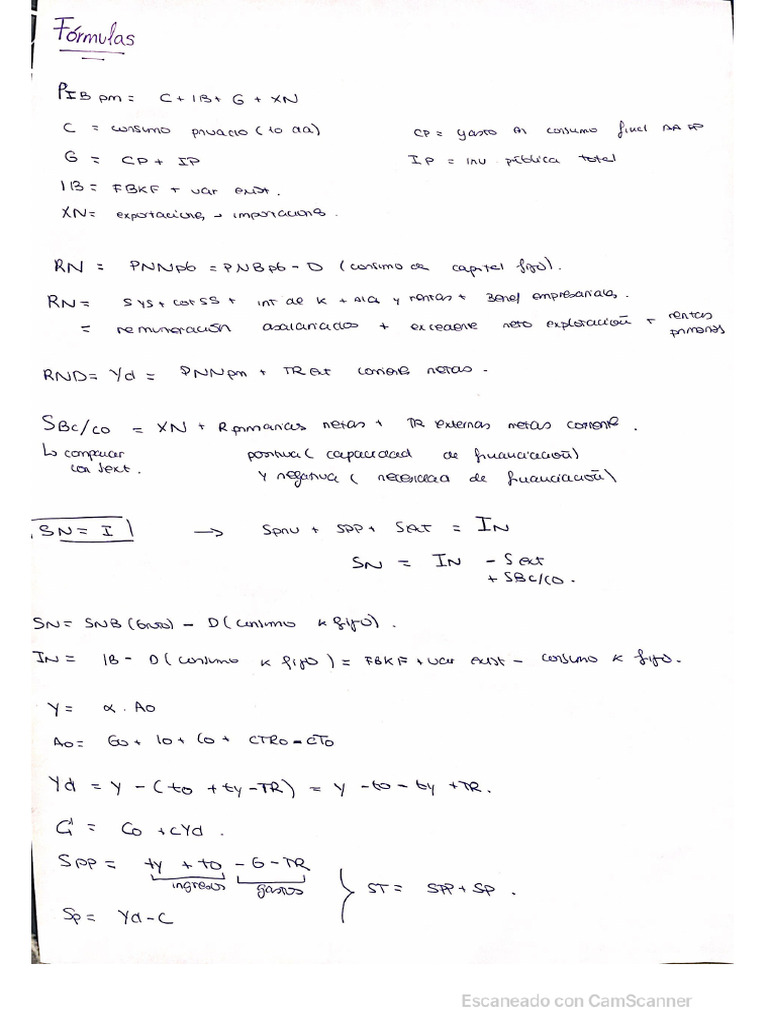 Fórmulas
PIB pm = C + IB + G + XN
C = consumo privado (to da)
CP = gasto en consumo final AA PP
G = CP + IP
IP = inv pública total
IB = FBKF + var exist.
XN = exportaciones - importaciones.
RN = PNNpb = PNBpb - D (consumo de capital fijo).
RN = SYS + cot SS + int de K + Alq y rentas + Benef empresariales.
= remuneración asalariados + excedente neto explotación + rentas primarias
RND = Yd = PNNpm + TR ext corriente netas.
SBC/CO = XN + R primarias netas + TR externas netas corriente.
↳ comparar con Sext.
positiva (capacidad de financiación)
y negativa (necesidad de financiación)
SN = I → Spriv + SPP + Sext = IN
SN = IN - Sext
+ SBC/CO.
SN = SNB - D (consumo K fijo).
IN = IB - D (consumo K fijo) = FBKF + var exist - consumo K fijo.
Y = α · Ao
Ao = Go + Io + Co + CTRo - CTo
Yd = Y - (to + ty - TR) = Y - to - ty + TR.
C = Co + cYd.
SPP = ty + to - G - TR
ingresos gastos
ST = SPP + SP.
Sp = Yd - C
Escaneado con CamScanner